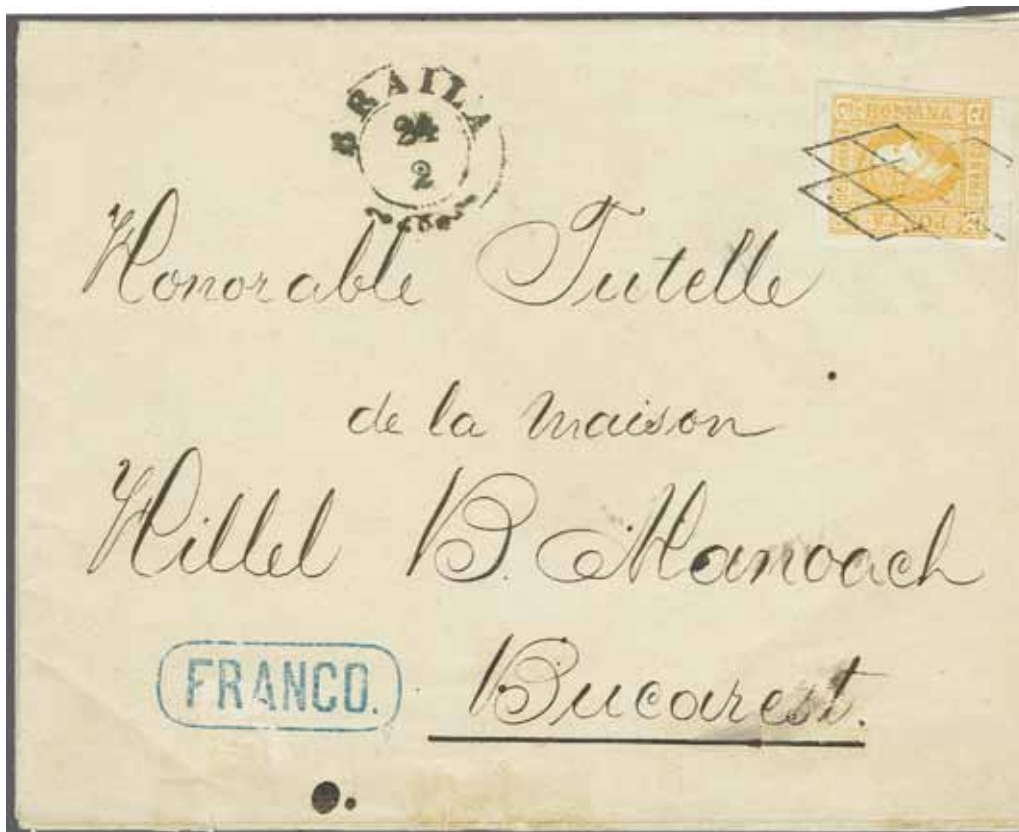 BRAILA
24
2
FRANCO
POSTA
Honorable Tutelle
de la maison
Hillel B. Manoach
FRANCO.
Bucarest.